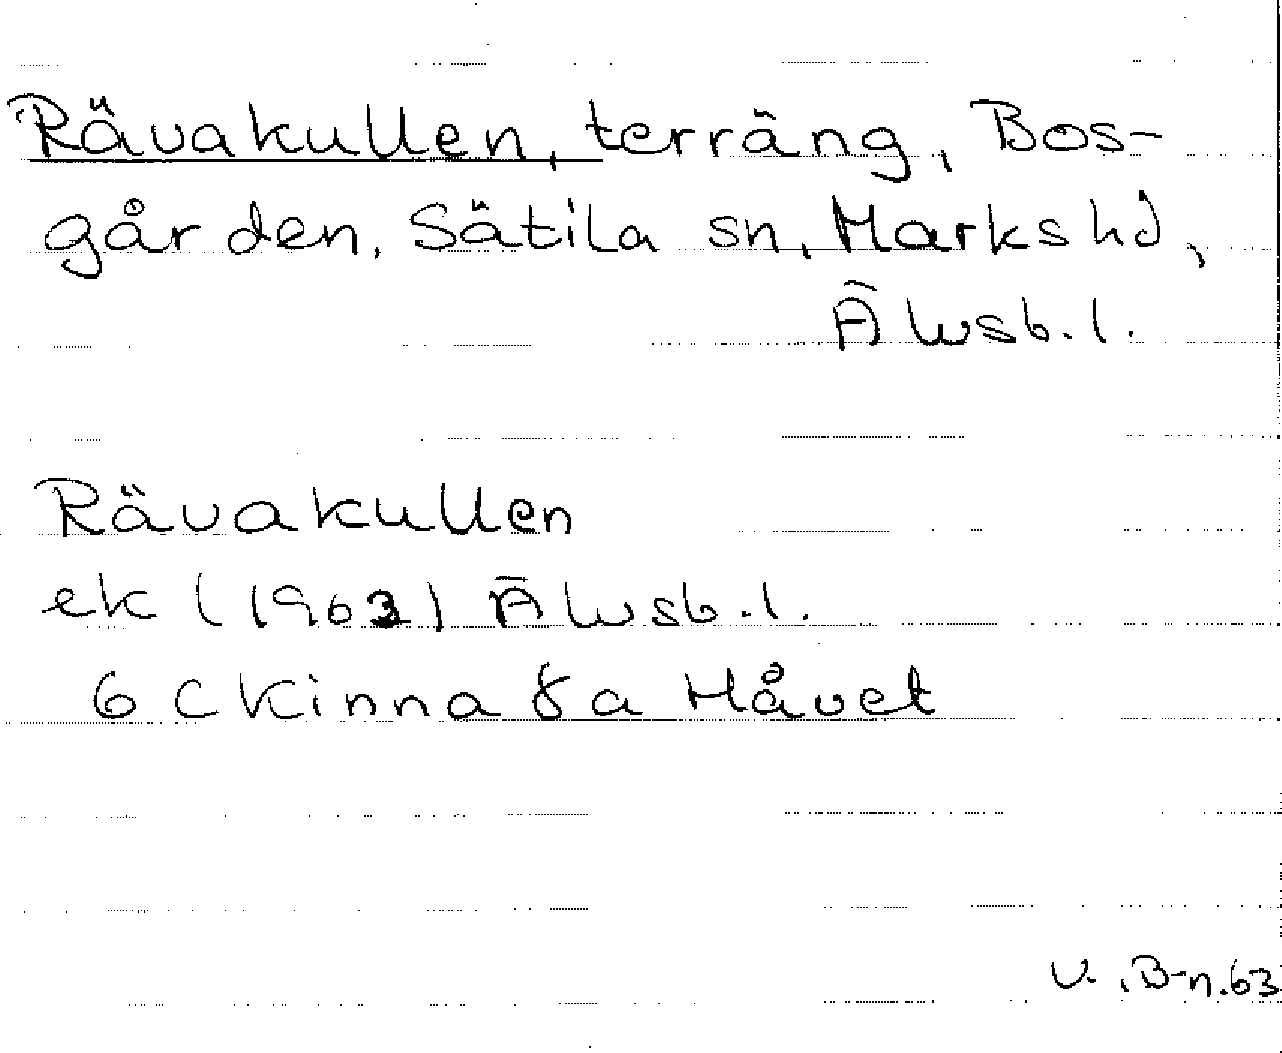 Rävakullen, terräng, Bos-
gården, Sätila sn, Marks hd,
Älvsb. l.
Rävakullen
ek (1963) Älvsb. l.
6 C Kinna 8 a Håvet
V. B-n. 63